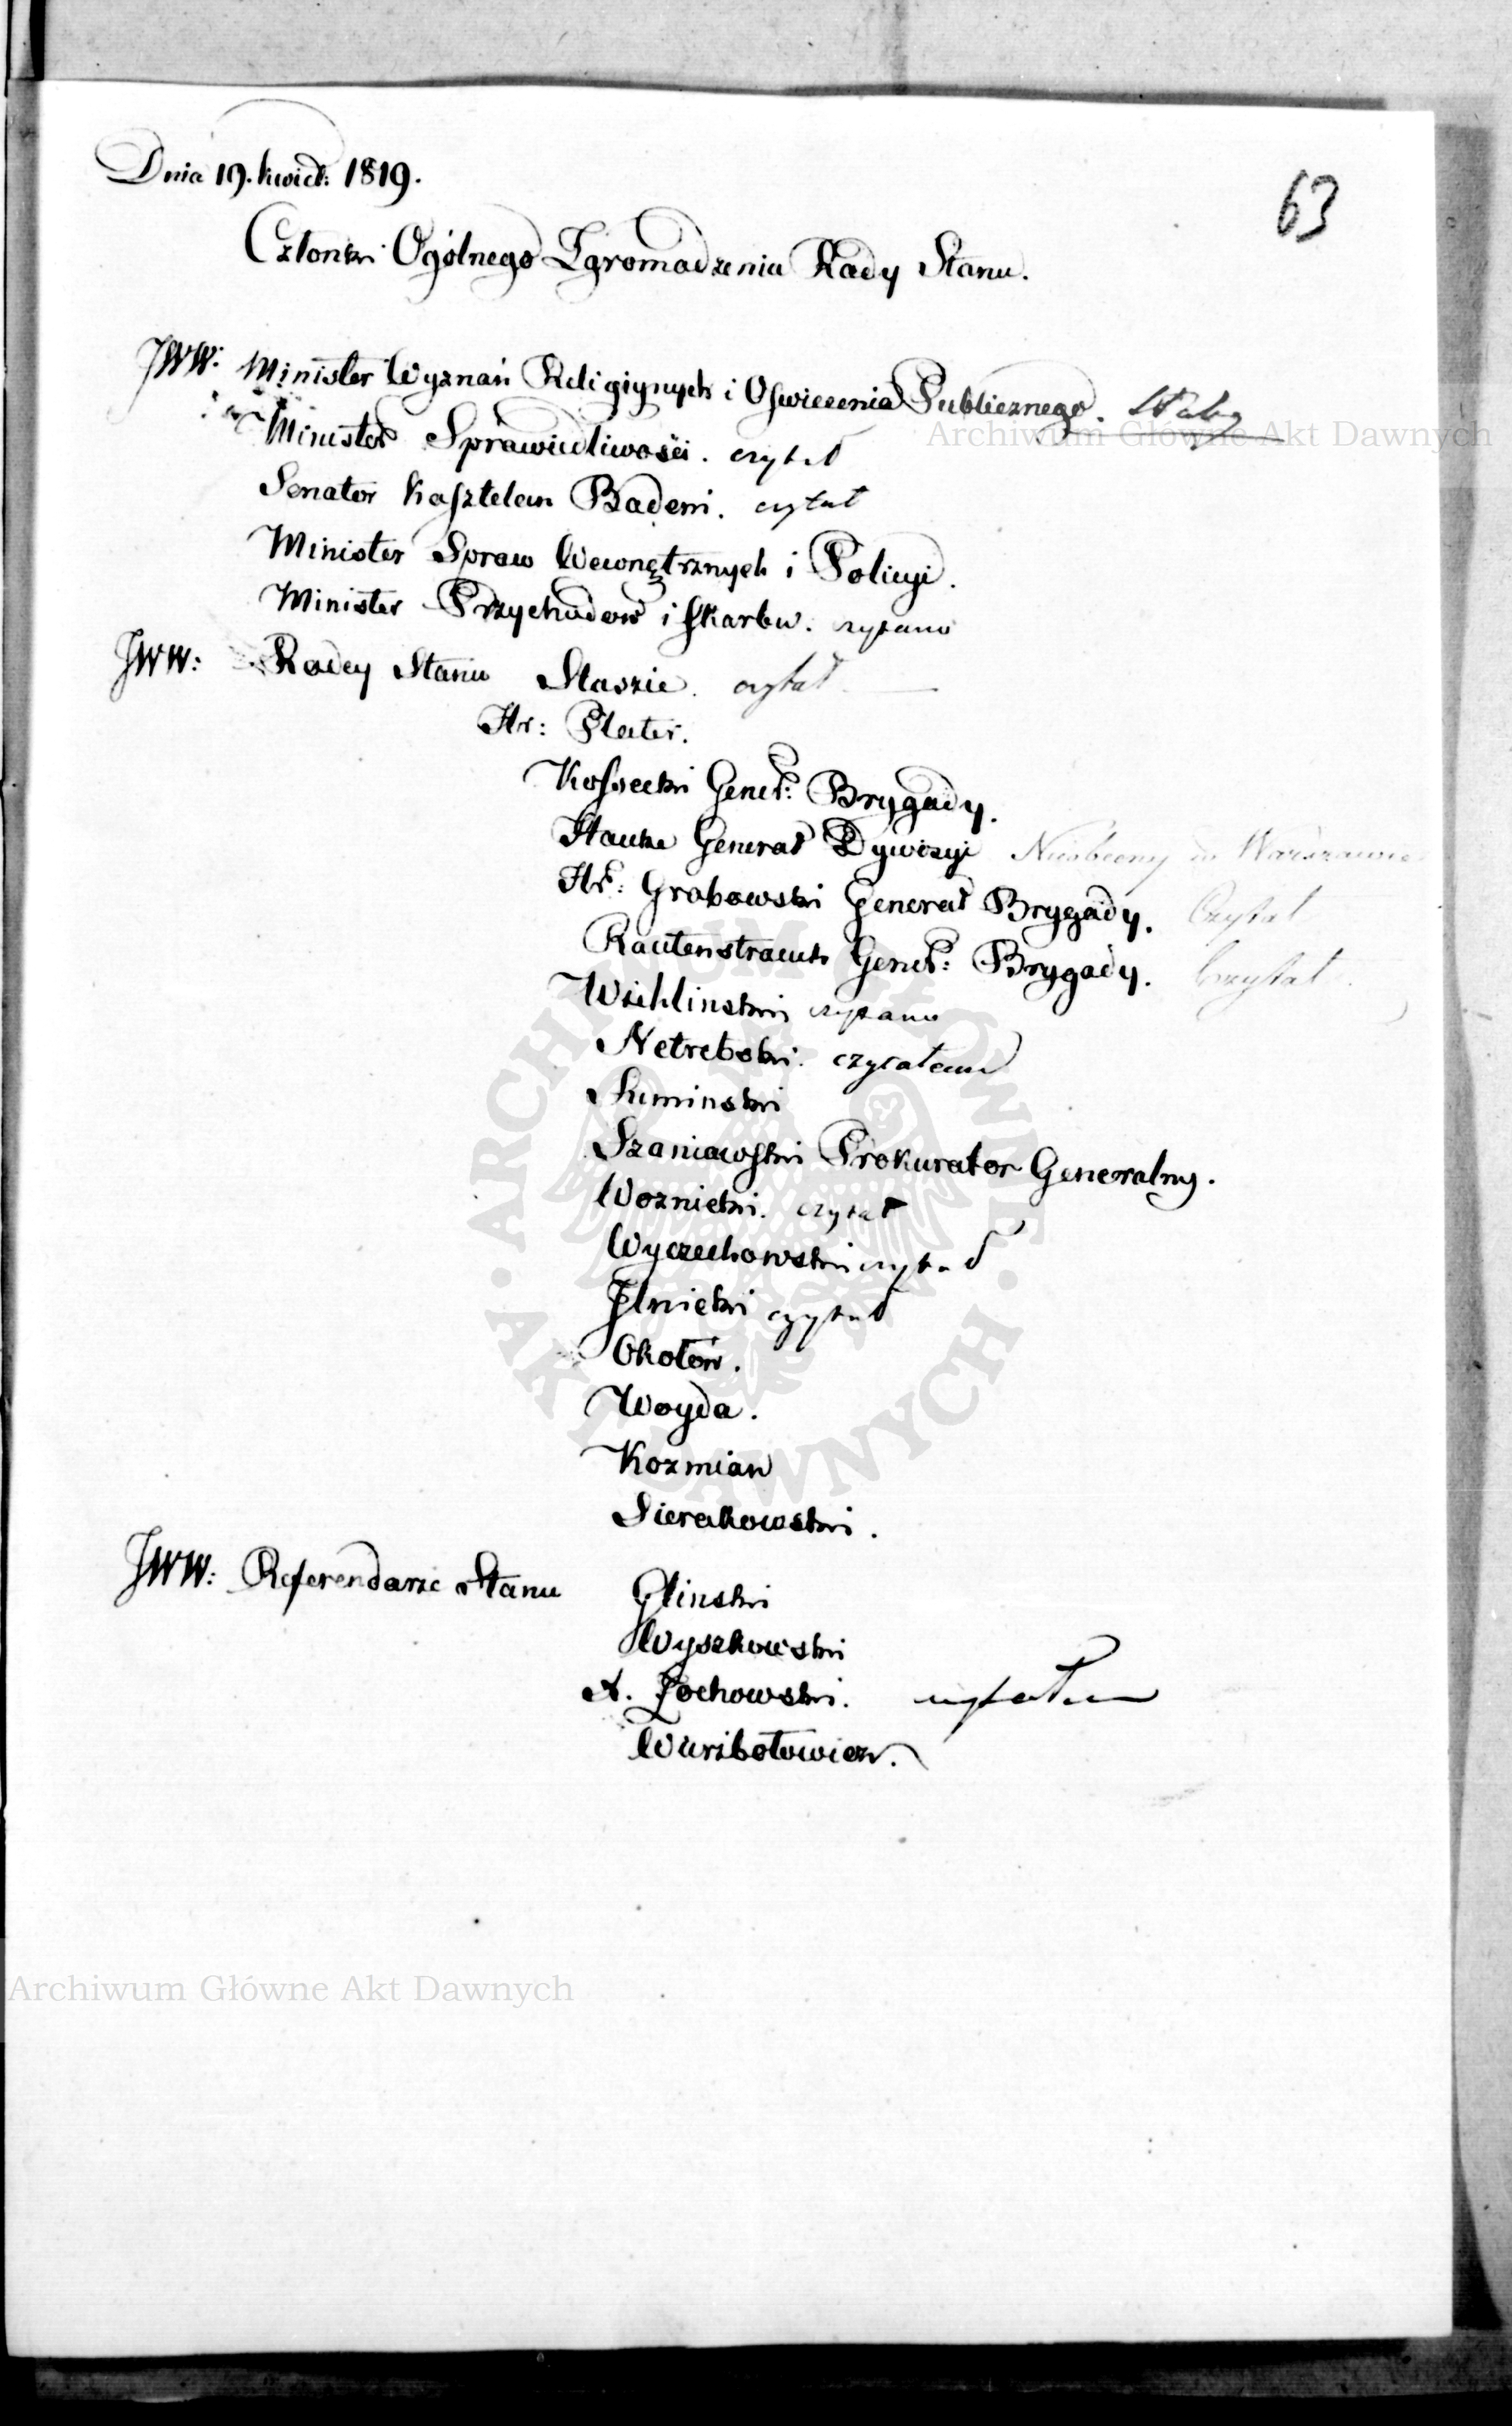 Dnia 19. kwiet: 1819.
63
Członki Ogólnego Zgromadzenia Rady Stanu.
JWW: Minister Wyznań Religiynych i Oswiecenia Publicznego.
Minister Sprawiedliwości. czytał
Senator Kasztelan Badeni. czytał
Minister Spraw Wewnętrznych i Policyi.
Minister Przychodow i Skarbu. czytano
JWW: Radcy Stanu Staszic. czytał
Hr: Plater.
Kossecki Generł: Brygady.
Hauke Generał Dywizyi Nieobecny w Warszawie
Hr: Grabowski Generał Brygady. Czytał
Rautenstrauch Generł: Brygady. Czytał.
Wichlinski czytano
Netrebski. czytałem
Suminski
Szaniawski Prokurator Generalny.
Woznicki. czytał
Wyczechowski czytał
Jlnicki czytał
Okołow.
Woyda.
Kozmian
Sierakowski.
JWW: Referendarze Stanu Glinski
Wyszkowski
A. Żochowski. czytałem
Wierzbołowicz.
Archiwum Główne Akt Dawnych
ARCHIWUM GŁÓWNE AKT DAWNYCH
Archiwum Główne Akt Dawnych